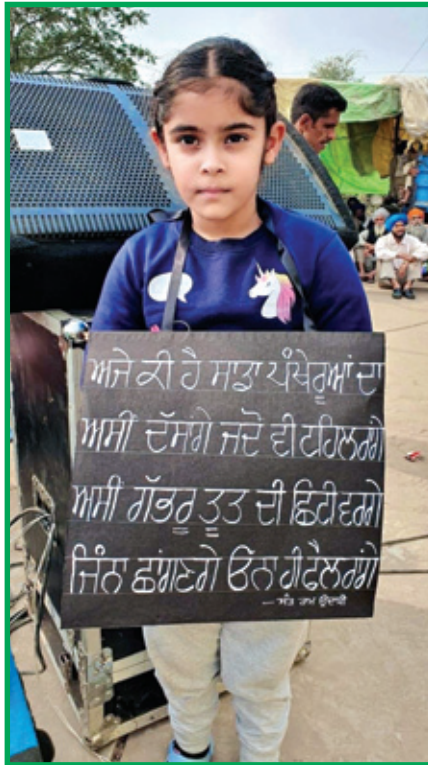 ਅਜੇ ਕੀ ਹੈ ਸਾਡਾ ਪੰਖੇਰੂਆਂ ਦਾ
ਅਸੀਂ ਦੱਸਾਂਗੇ ਜਦੋਂ ਵੀ ਟਹਿਲਰਾਂਗੇ
ਅਸੀਂ ਗੱਭਰੂ ਤੂਤ ਦੀ ਛਿਟੀ ਵਰਗੇ
ਜਿੰਨਾ ਛਾਂਗਣਗੇ ਓਨਾ ਹੀ ਫੈਲਰਾਂਗੇ
— ਸੰਤ ਰਾਮ ਉਦਾਸੀ